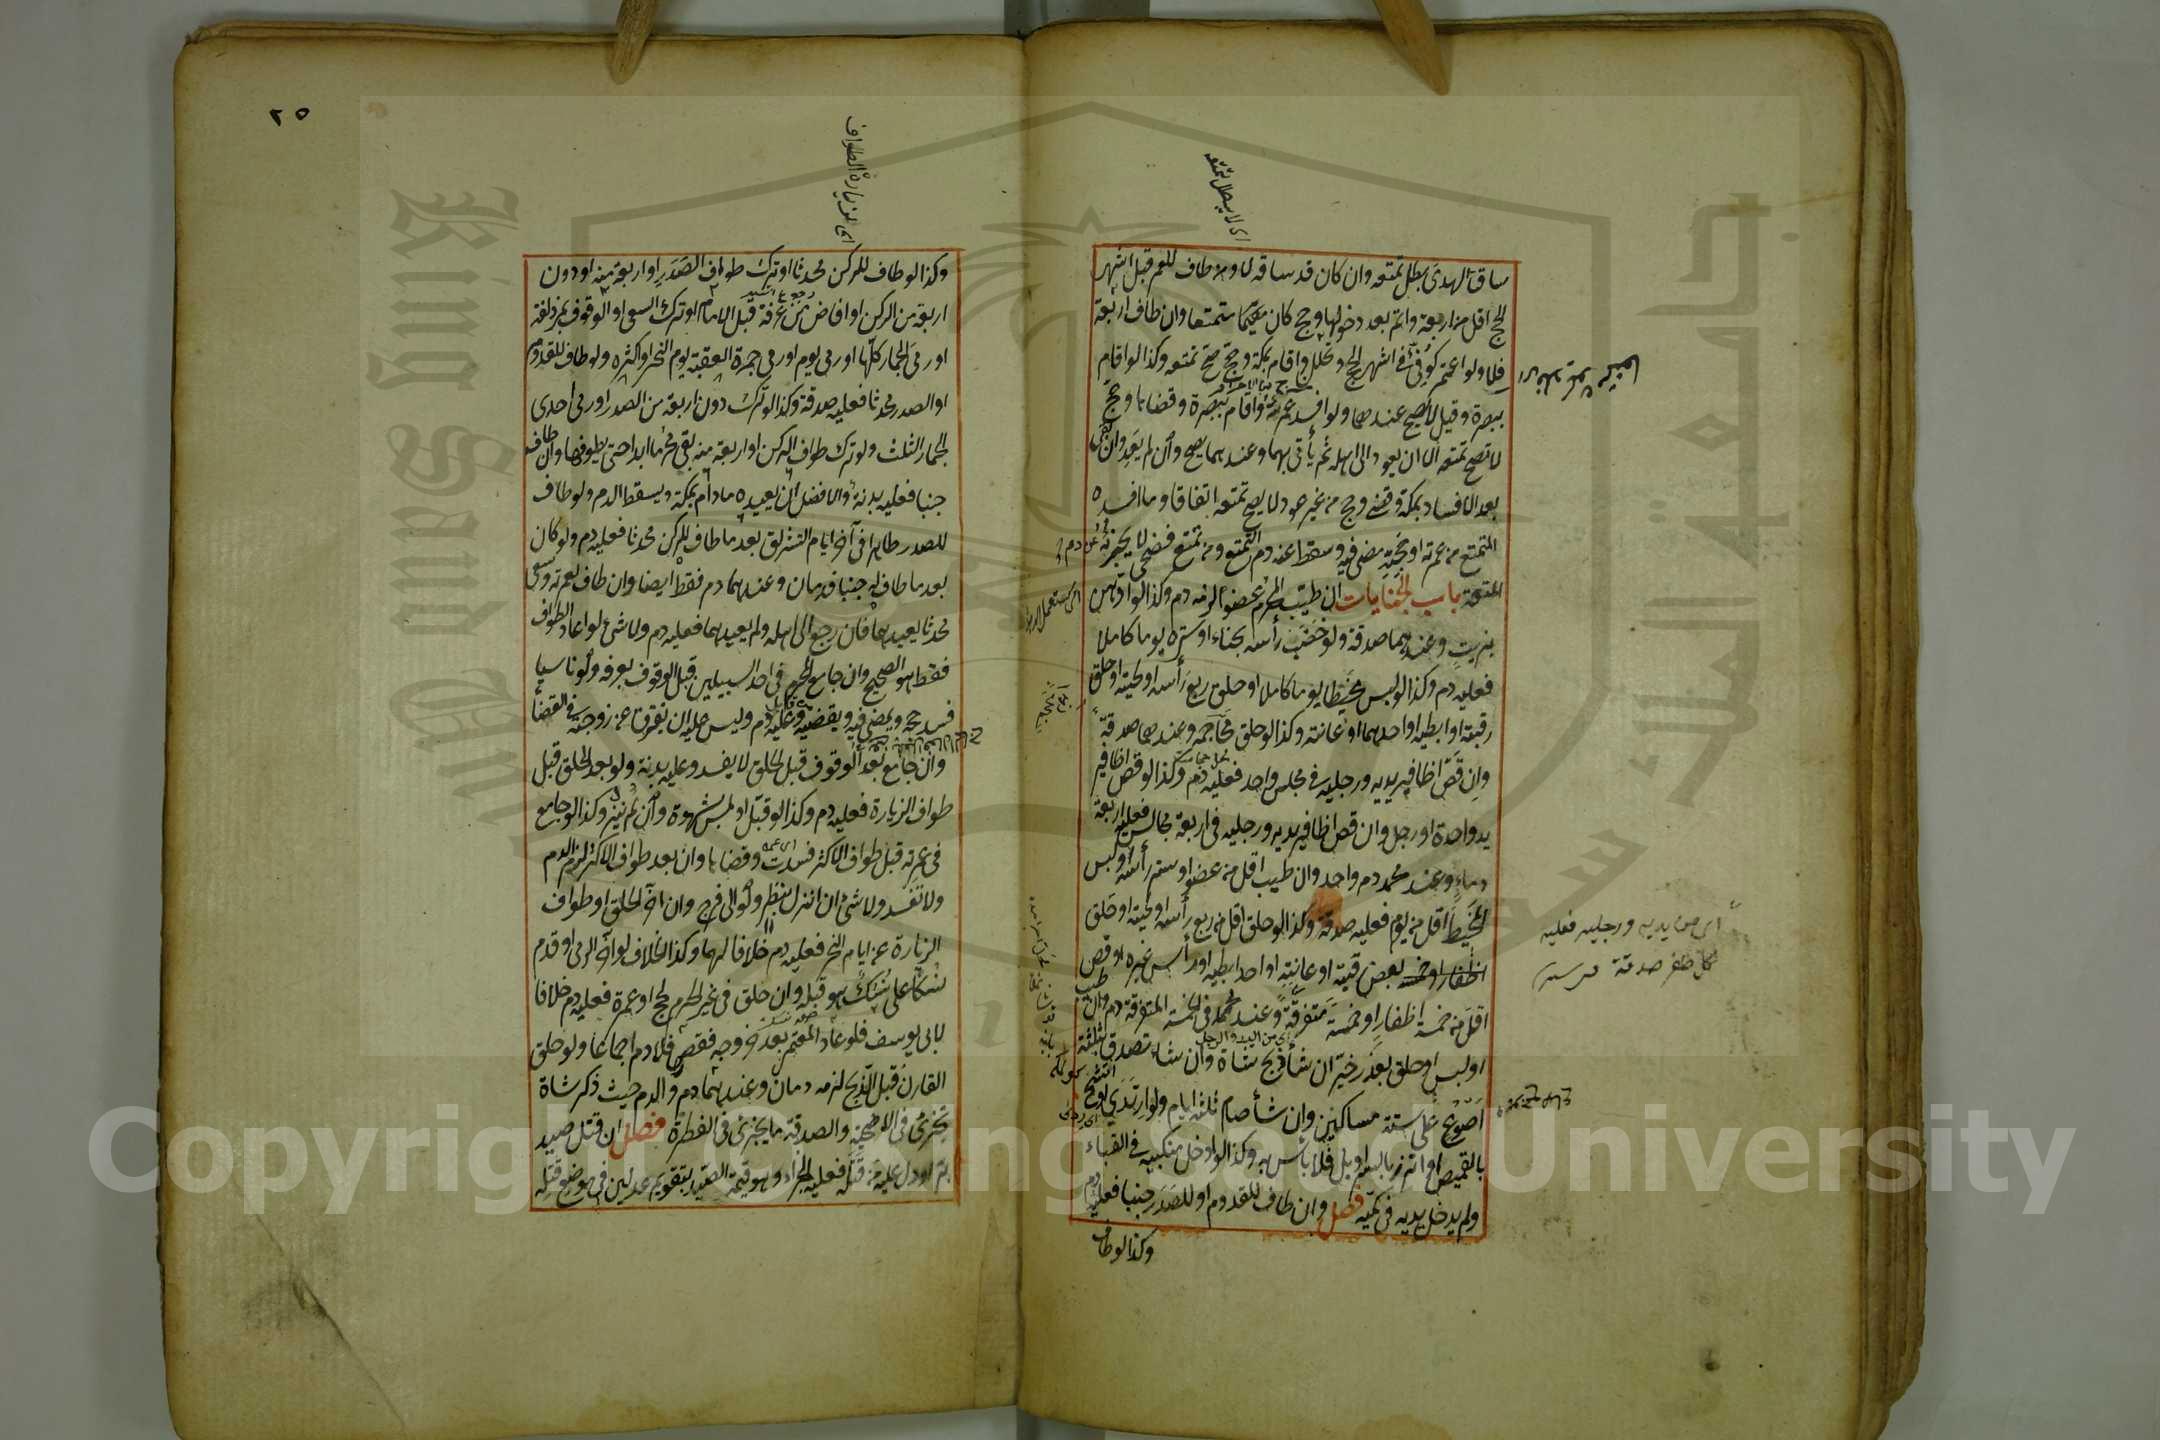 ساق الهدى بطل تمتعه وان كان قد ساقه لا ولو طاف للعمرة قبل اشهر
الحج اقل من اربعة واتم بعد دخولها وحج كان متمتعا وان طاف اربعة
فلا ولو اعتمر كوفى فى اشهر الحج وتحلل واقام بمكة وحج صح تمتعه وكذا لو اقام
ببصرة وقيل لا يصح عندهما ولو افسد عمرته واقام ببصرة وقضاها وحج
لا تصح تمتعه الا ان يعود الى اهله ثم يأتى بهما وعندهما يصح وان لم يعد وان بقى
بعد الافساد بمكة وقضى وحج من غير عود لا يصح تمتعه اتفاقا وما افسده
المتمتع من عمرته او حجته مضى فيه وسقط عنه دم التمتع ومن تمتع فضحى لا يجزئه عن دم
المتعة باب الجنايات ان طيب المحرم عضوا لزمه دم وكذا لو ادهن
بزيت وعندهما صدقة ولو خضب رأسه بحناء او ستره يوما كاملا
فعليه دم وكذا لو لبس مخيطا يوما كاملا او حلق ربع رأسه او لحيته او حلق
رقبته او ابطيه او احدهما او عانته وكذا لو حلق محاجمه وعندهما صدقة
وان قص اظافير يديه ورجليه فى مجلس واحد فعليه دم وكذا لو قص اظافير
يد واحدة او رجل وان قص اظافير يديه ورجليه فى اربعة مجالس فعليه اربعة
دماء وعند محمد دم واحد وان طيب اقل من عضو او ستر رأسه او لبس
المخيط اقل من يوم فعليه صدقة وكذا لو حلق اقل من ربع رأسه او لحيته او حلق
بعض رقبته او عانته او احد ابطيه او رأس غيره او قص
اقل من خمسة اظفار او خمسة متفرقة وعند محمد فى الخمسة المتفرقة دم وان طيب
او لبس او حلق بعذر خير ان شاء ذبح شاة وان شاء تصدق بثلثة
اصوع على ستة مساكين وان شاء صام ثلثة ايام ولو ارتدى او اتشح
بالقميص او اتزر بالسراويل فلا بأس به وكذا لو ادخل منكبيه فى القباء
ولم يدخل يديه فى كميه فصل وان طاف للقدوم او للصدر جنبا فعليه دم
وكذا لو طاف
اى لا يبطل تمتعه
اى من يديه ورجليه فعليه
لكل ظفر صدقة
٢٥
اى الزيارة الطواف
وكذا لو طاف للركن محدثا او ترك طواف الصدر او اربعة منه او دون
اربعة من الركن او افاض من عرفة قبل الامام او ترك السعى او الوقوف بمزدلفة
او رمى الجمار كلها او رمى يوم او رمى جمرة العقبة يوم النحر او اكثره ولو طاف للقدوم
او الصدر محدثا فعليه صدقة وكذا لو ترك دون اربعة من الصدر او رمى احدى
الجمار الثلث ولو ترك طواف الركن او اربعة منه بقى محرما ابدا حتى يطوفها وان طاف
جنبا فعليه بدنة والافضل ان يعيده ما دام بمكة ويسقط الدم ولو طاف
للصدر طاهرا فى آخر ايام التشريق بعد ما طاف للركن محدثا فعليه دم ولو كان
بعد ما طاف له جنبا فدمان وعندهما دم فقط ايضا وان طاف لعمرته وسعى
محدثا يعيدهما فان رجع الى اهله ولم يعيدهما فعليه دم ولا شئ لو اعاد الطواف
فقط هو الصحيح وان جامع المحرم فى احد السبيلين قبل الوقوف بعرفة ولو ناسيا
فسد حجه ويمضى فيه ويقضيه وعليه دم وليس عليه ان يفترق عن زوجته فى القضاء
وان جامع بعد الوقوف قبل الحلق لا يفسد وعليه بدنة ولو بعد الحلق قبل
طواف الزيارة فعليه دم وكذا لو قبل او لمس بشهوة وان لم ينزل وكذا لو جامع
فى عمرته قبل طواف الاكثر فسدت وقضاها وان بعد طواف الاكثر لزم الدم
ولا تفسد ولا شئ ان انزل بنظر ولو الى فرج وان اخر الحلق او طواف
الزيارة عن ايام النحر فعليه دم خلافا لهما وكذا الخلاف لو اخر الرمى او قدم
نسكا على نسك هو قبله وان حلق فى غير الحرم لحج او عمرة فعليه دم خلافا
لابى يوسف فلو عاد المعتمر بعد خروجه فقصر فلا دم اجماعا ولو حلق
القارن قبل الذبح لزمه دمان وعندهما دم والدم حيث ذكر شاة
تجزئ فى الاضحية والصدقة ما يجزئ فى الفطرة فصل ان قتل صيد
بر او دل عليه من قتله فعليه الجزاء وهو قيمة الصيد بتقويم عدلين فى موضع قتله
King Saud University
جامعة الملك سعود
Copyright © King Saud University